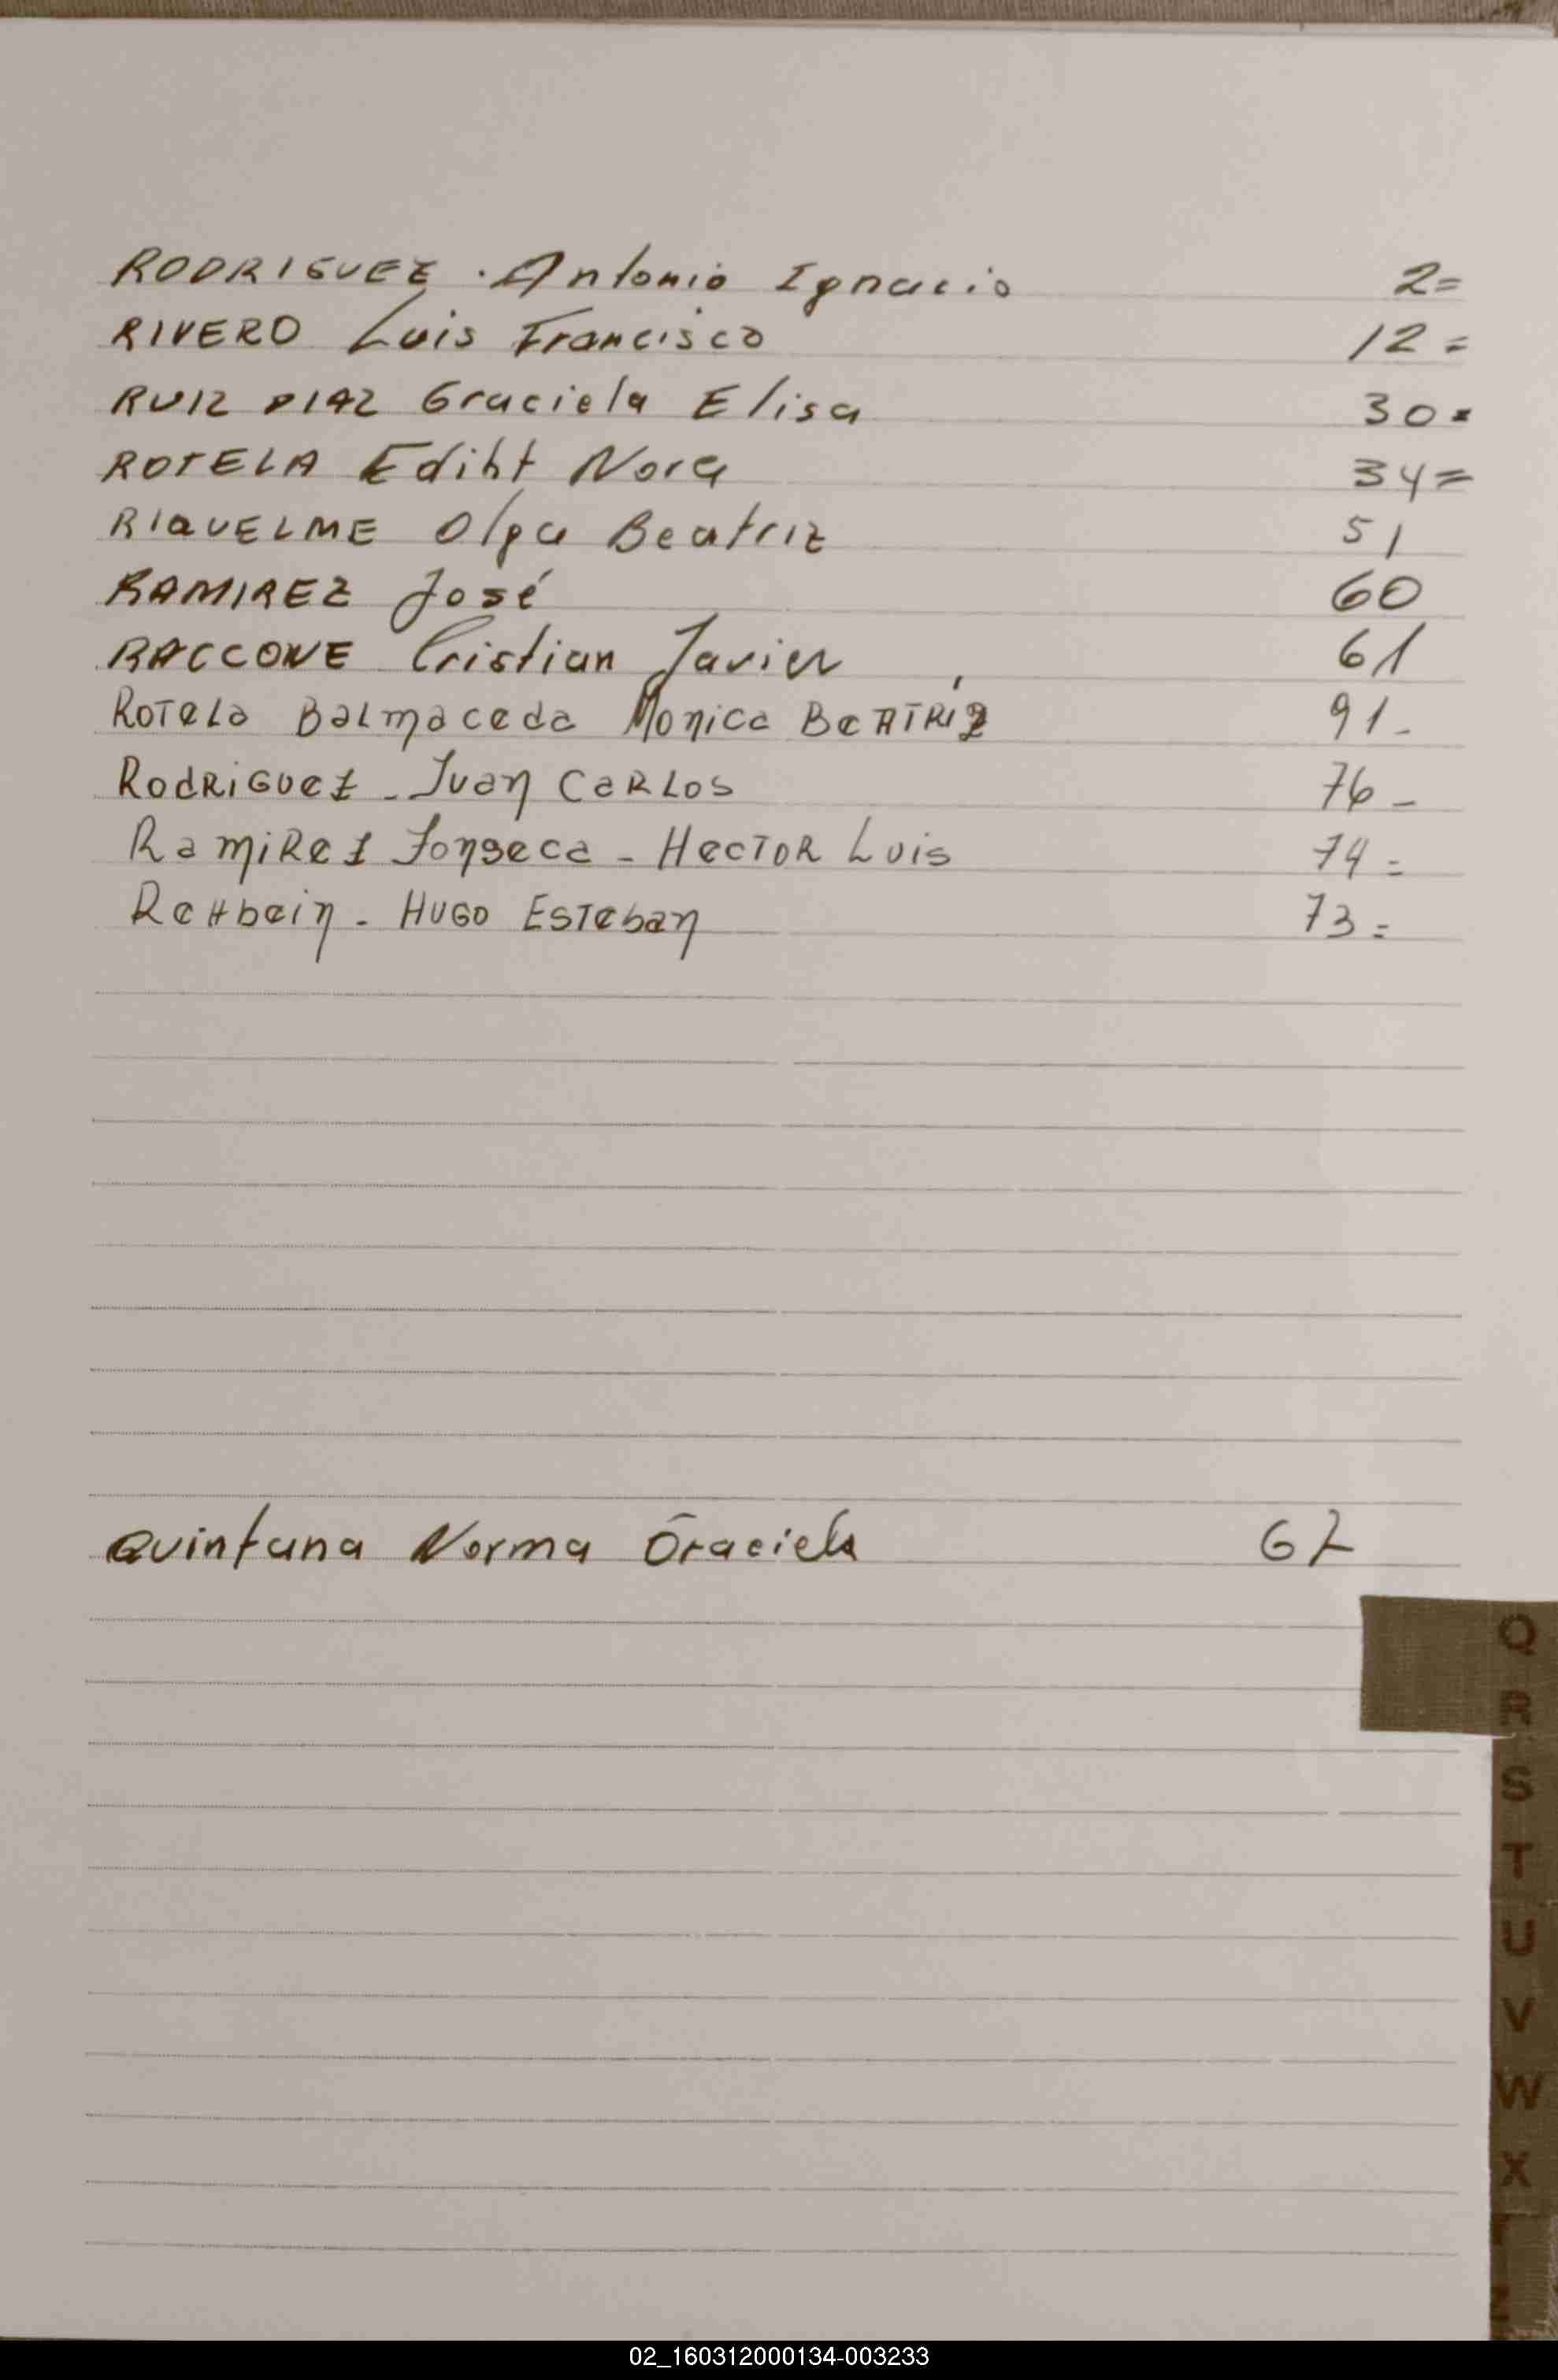 RODRIGUEZ . Antonio Ignacio 2=
RIVERO Luis Francisco 12=
RUIZ DIAZ Graciela Elisa 30=
ROTELA Ediht Nora 34=
RIQUELME Olga Beatriz 51
RAMIREZ José 60
RACCONE Cristian Javier 61
Rotela Balmaceda Monica BEATRIZ 91-
RodRiGuez - Juan CaRLos 76-
RamiRez Fonseca - HecToR Luis 74=
ReHbein - HUGO ESTeban 73=
Quintana Norma Graciela
Q
R
S
T
U
V
W
X
02_160312000134-003233